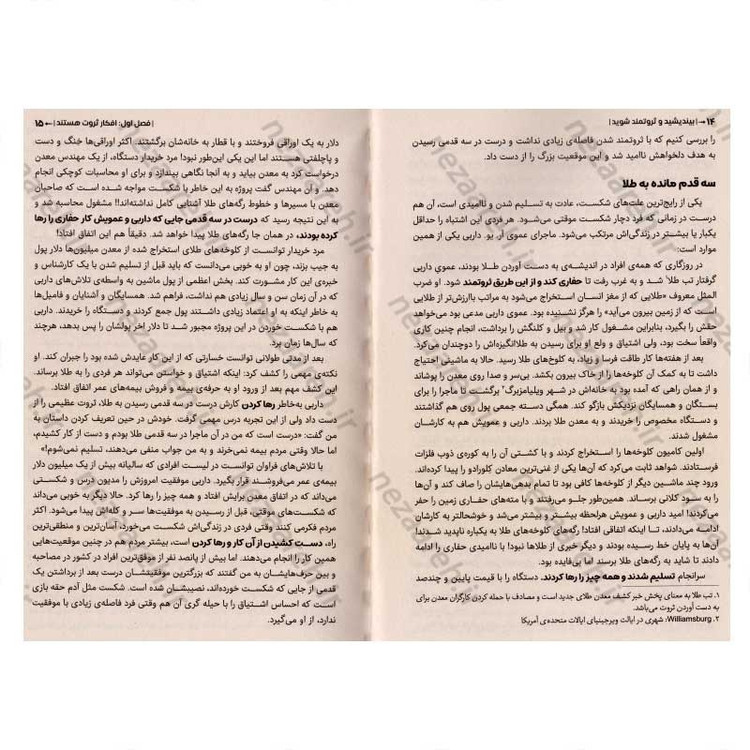 ۱۴ → | بیندیشید و ثروتمند شوید |
را بررسی کنیم که با ثروتمند شدن فاصله‌ی زیادی نداشت و درست در سه قدمی رسیدن
به هدف دلخواهش ناامید شد و این موقعیت بزرگ را از دست داد.
سه قدم مانده به طلا
یکی از رایج‌ترین علت‌های شکست، عادت به تسلیم شدن و ناامیدی است، آن هم
درست در زمانی که فرد دچار شکست موقتی می‌شود. هر فردی این اشتباه را حداقل
یکبار یا بیشتر در زندگی‌اش مرتکب می‌شود. ماجرای عموی آر. یو. داربی یکی از همین
موارد است:
در روزگاری که همه‌ی افراد در اندیشه‌ی به دست آوردن طلا بودند، عموی داربی
گرفتار تب طلا۱ شد و به غرب رفت تا حفاری کند و از این طریق ثروتمند شود. او ضرب
المثل معروف «طلایی که از مغز انسان استخراج می‌شود به مراتب باارزش‌تر از طلایی
است که از زمین بیرون می‌آید» را هرگز نشنیده بود. عموی داربی مدعی بود می‌خواهد
حقش را بگیرد، بنابراین مشغول کار شد و بیل و کلنگش را برداشت، انجام چنین کاری
واقعاً سخت بود، ولی اشتیاق و ولع او برای رسیدن به طلا انگیزه‌اش را دوچندان می‌کرد.
بعد از هفته‌ها کار طاقت فرسا و زیاد، به کلوخه‌های طلا رسید. حالا به ماشینی احتیاج
داشت تا به کمک آن کلوخه‌ها را از خاک بیرون بکشد. بی‌سر و صدا روی معدن را پوشاند
و از همان راهی که آمده بود به خانه‌اش در شهر ویلیامزبرگ۲ برگشت تا ماجرا را برای
بستگان و همسایگان نزدیکش بازگو کند. همگی دسته جمعی پول روی هم گذاشتند
و دستگاه مخصوص را خریدند و به معدن طلا بردند. داربی و عمویش هم به کارشان
مشغول شدند.
اولین کامیون کلوخه‌ها را استخراج کردند و با کشتی آن را به کوره‌ی ذوب فلزات
فرستادند. شواهد ثابت می‌کرد که آن‌ها یکی از غنی‌ترین معادن کلورادو را پیدا کرده‌اند.
ورود چند ماشین دیگر از کلوخه‌ها کافی بود تا تمام بدهی‌هایشان را صاف کند و آن‌ها
را به سود کلانی برساند. همین‌طور جلو می‌رفتند و با مته‌های حفاری زمین را حفر
می‌کردند! امید داربی و عمویش هرلحظه بیشتر و بیشتر می‌شد و خوشحال‌تر به کارشان
ادامه می‌دادند، تا اینکه اتفاقی افتاد! رگه‌های کلوخه‌های طلا به یکباره ناپدید شدند!
آن‌ها به پایان خط رسیده بودند و دیگر خبری از طلاها نبود! با ناامیدی حفاری را ادامه
دادند تا شاید به رگه‌های طلا برسند اما بی‌فایده بود.
سرانجام تسلیم شدند و همه چیز را رها کردند. دستگاه را با قیمت پایین و چندصد
۱. تب طلا به معنای پخش خبر کشف معدن طلای جدید است و مصادف با حمله کردن کارگران معدن برای
به دست آوردن ثروت می‌باشد.
۲. Williamsburg: شهری در ایالت ویرجینیای ایالات متحده‌ی آمریکا
| فصل اول: افکار ثروت هستند | ← ۱۵
دلار به یک اوراقی فروختند و با قطار به خانه‌شان برگشتند. اکثر اوراقی‌ها خنگ و دست
و پاچلفتی هستند اما این یکی این‌طور نبود! مرد خریدار دستگاه، از یک مهندس معدن
درخواست کرد به معدن بیاید و به آنجا نگاهی بیندازد و برای او محاسبات کوچکی انجام
دهد. و آن مهندس گفت پروژه به این خاطر با شکست مواجه شده است که صاحبان
معدن با مسیرها و خطوط رگه‌های طلا آشنایی کامل نداشته‌اند!! مشغول محاسبه شد و
به این نتیجه رسید که درست در سه قدمی جایی که داربی و عمویش کار حفاری را رها
کرده بودند، در همان جا رگه‌های طلا پیدا خواهد شد. دقیقاً هم این اتفاق افتاد!
مرد خریدار توانست از کلوخه‌های طلای استخراج شده از معدن میلیون‌ها دلار پول
به جیب بزند، چون او به خوبی می‌دانست که باید قبل از تسلیم شدن با یک کارشناس و
خبره‌ی این کار مشورت کند. بخش اعظمی از پول ماشین به واسطه‌ی تلاش‌های داربی
که در آن زمان سن و سال زیادی هم نداشت، فراهم شد. همسایگان و آشنایان و فامیل‌ها
به خاطر اینکه به او اعتماد زیادی داشتند پول جمع کردند و دستگاه را خریدند. داربی
هم با شکست خوردن در این پروژه مجبور شد تا دلار آخر پولشان را پس بدهد، هرچند
که سال‌ها زمان برد.
بعد از مدتی طولانی توانست خسارتی که از این کار عایدش شده بود را جبران کند. او
نکته‌ی مهمی را کشف کرد: اینکه اشتیاق و خواستن می‌تواند هر فردی را به طلا برساند.
این کشف مهم بعد از ورود او به حرفه‌ی بیمه و فروش بیمه‌های عمر اتفاق افتاد.
داربی به‌خاطر رها کردن کارش درست در سه قدمی رسیدن به طلا، ثروت عظیمی را از
دست داد ولی از این تجربه درس مهمی گرفت. خودش در حین تعریف کردن داستان به
من گفت: «درست است که من در آن ماجرا در سه قدمی طلا بودم و دست از کار کشیدم،
اما حالا وقتی مردم بیمه نمی‌خرند و به من جواب منفی می‌دهند، تسلیم نمی‌شوم!»
با تلاش‌های فراوان توانست در لیست افرادی که سالیانه بیش از یک میلیون دلار
بیمه‌ی عمر می‌فروشند قرار بگیرد. داربی موفقیت امروزش را مدیون درس و شکستی
می‌داند که در اتفاق معدن برایش افتاد و همه چیز را رها کرد. حالا دیگر به خوبی می‌داند
که شکست‌های موقتی، قبل از رسیدن به موفقیت‌ها سر و کله‌اش پیدا می‌شود. اکثر
مردم فکر می‌کنند وقتی فردی در زندگی‌اش شکست می‌خورد، آسان‌ترین و منطقی‌ترین
راه، دست کشیدن از آن کار و رها کردن است، بیشتر مردم هم در چنین موقعیت‌هایی
همین کار را انجام می‌دهند. اما بیش از پانصد نفر از افراد موفق در کشور در مصاحبه
و بین حرف‌هایشان به من گفتند که بزرگترین موفقیتشان درست بعد از برداشتن یک
قدمی از جایی که شکست خورده‌اند، نصیبشان شده است. شکست مثل آدم حقه بازی
است که احساس اشتیاق را با حیله گری آن هم وقتی فرد فاصله‌ی زیادی با موفقیت
ندارد، از او می‌گیرد.
nezaameh.ir